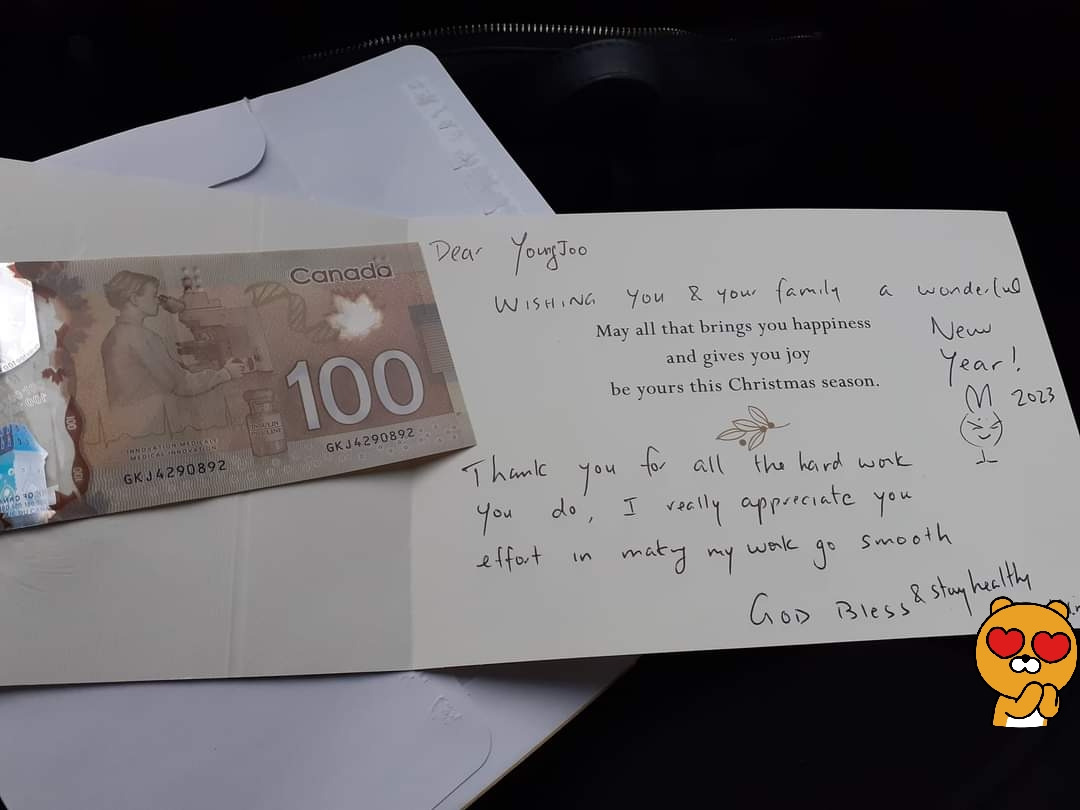 Canada
100
INNOVATION MÉDICALE
MEDICAL INNOVATION
GKJ4290892
GKJ4290892
Dear YoungJoo
WISHING you & your family a wonderful
New
Year!
2023
May all that brings you happiness
and gives you joy
be yours this Christmas season.
Thank you for all the hard work
you do, I really appreciate you
effort in making my work go smooth
GOD Bless & stay healthy